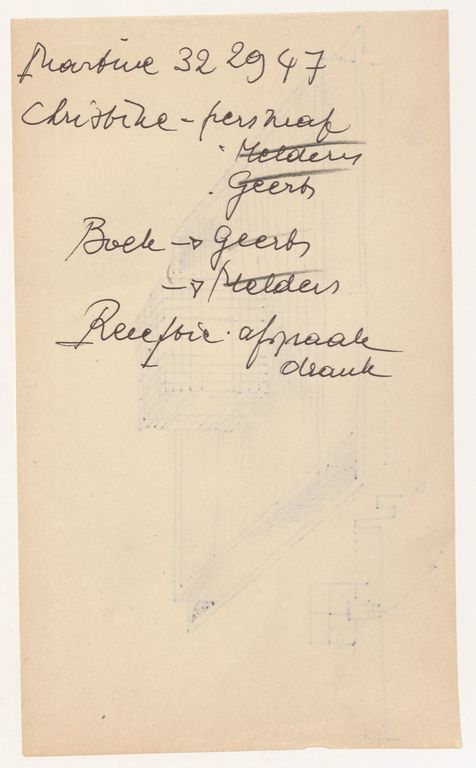 Martine 32 29 47
Christine - persmap
. Melders
. Geerts
Boek → Geerts
→ Melders
Receptie . afspraak
drank